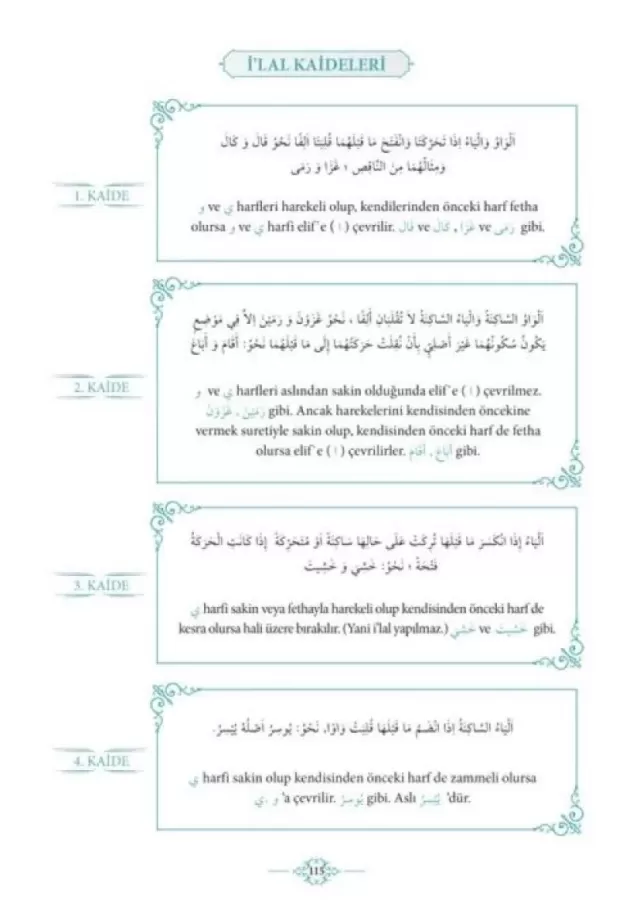 İ'LAL KAİDELERİ
1. KAİDE
اَلْوَاوُ وَالْيَاءُ إِذَا تَحَرَّكَتَا وَانْفَتَحَ مَا قَبْلَهُمَا قُلِبَتَا اَلِفًا نَحْوُ قَالَ وَ كَالَ
وَمِثَالُهُمَا مِنَ النَّاقِصِ ؛ غَزَا وَ رَمَى
و ve ي harfleri harekeli olup, kendilerinden önceki harf fetha
olursa و ve ي harfi elif'e ( ا ) çevrilir. قَالَ ve كَالَ , غَزَا ve رَمَى gibi.
2. KAİDE
اَلْوَاوُ السَّاكِنَةُ وَالْيَاءُ السَّاكِنَةُ لَا تُقْلَبَانِ أَلِفًا ، نَحْوُ غَزَوْنَ وَ رَمَيْنَ اِلاَّ فِي مَوْضِعٍ
يَكُونُ سُكُونُهُمَا غَيْرَ أَصْلِيٍّ بِأَنْ نُقِلَتْ حَرَكَتُهُمَا إِلَى مَا قَبْلَهُمَا نَحْوُ: أَقَامَ وَ أَبَاعَ
و ve ي harfleri aslından sakin olduğunda elif'e ( ا ) çevrilmez.
رَمَيْنَ , غَزَوْنَ gibi. Ancak harekelerini kendisinden öncekine
vermek suretiyle sakin olup, kendisinden önceki harf de fetha
olursa elif'e ( ا ) çevrilirler. أَبَاعَ , أَقَامَ gibi.
3. KAİDE
اَلْيَاءُ إِذَا انْكَسَرَ مَا قَبْلَهَا تُرِكَتْ عَلَى حَالِهَا سَاكِنَةً اَوْ مُتَحَرِّكَةً إِذَا كَانَتِ الْحَرَكَةُ
فَتْحَةً ؛ نَحْوُ: خَشِيَ وَ خَشِيتَ
ي harfi sakin veya fethayla harekeli olup kendisinden önceki harf de
kesra olursa hali üzere bırakılır. (Yani i'lal yapılmaz.) خَشِيَ ve خَشِيتَ gibi.
4. KAİDE
اَلْيَاءُ السَّاكِنَةُ إِذَا انْضَمَّ مَا قَبْلَهَا قُلِبَتْ وَاوًا، نَحْوُ: يُوسِرُ اَصْلُهُ يُيْسِرُ.
ي harfi sakin olup kendisinden önceki harf de zammeli olursa
ي, و 'a çevrilir. يُوسِرُ gibi. Aslı يُيْسِرُ 'dür.
115